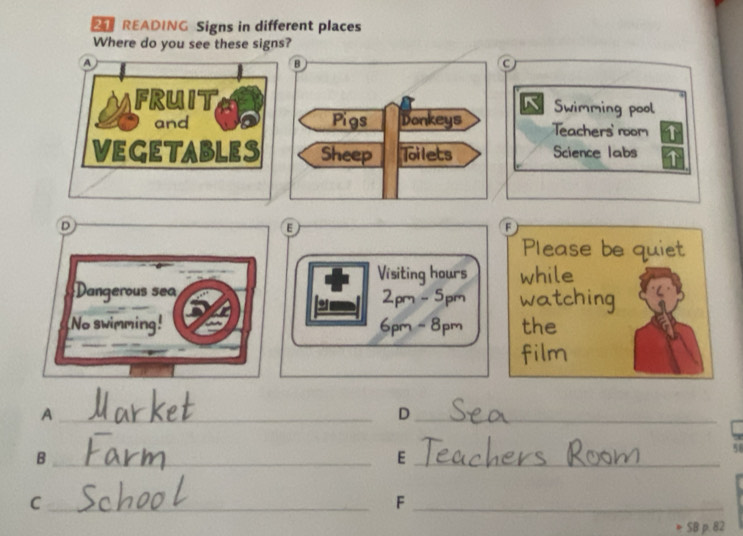 21 READING Signs in different places
Where do you see these signs?
A
FRUIT
and
VEGETABLES
B
Pigs Donkeys
Sheep Toilets
C
Swimming pool
Teachers' room
Science labs
D
Dangerous sea
No swimming!
E
Visiting hours
2pm - 5pm
6pm - 8pm
F
Please be quiet
while
watching
the
film
A Market
B Farm
C School
D Sea
E Teachers Room
F
SB p. 82